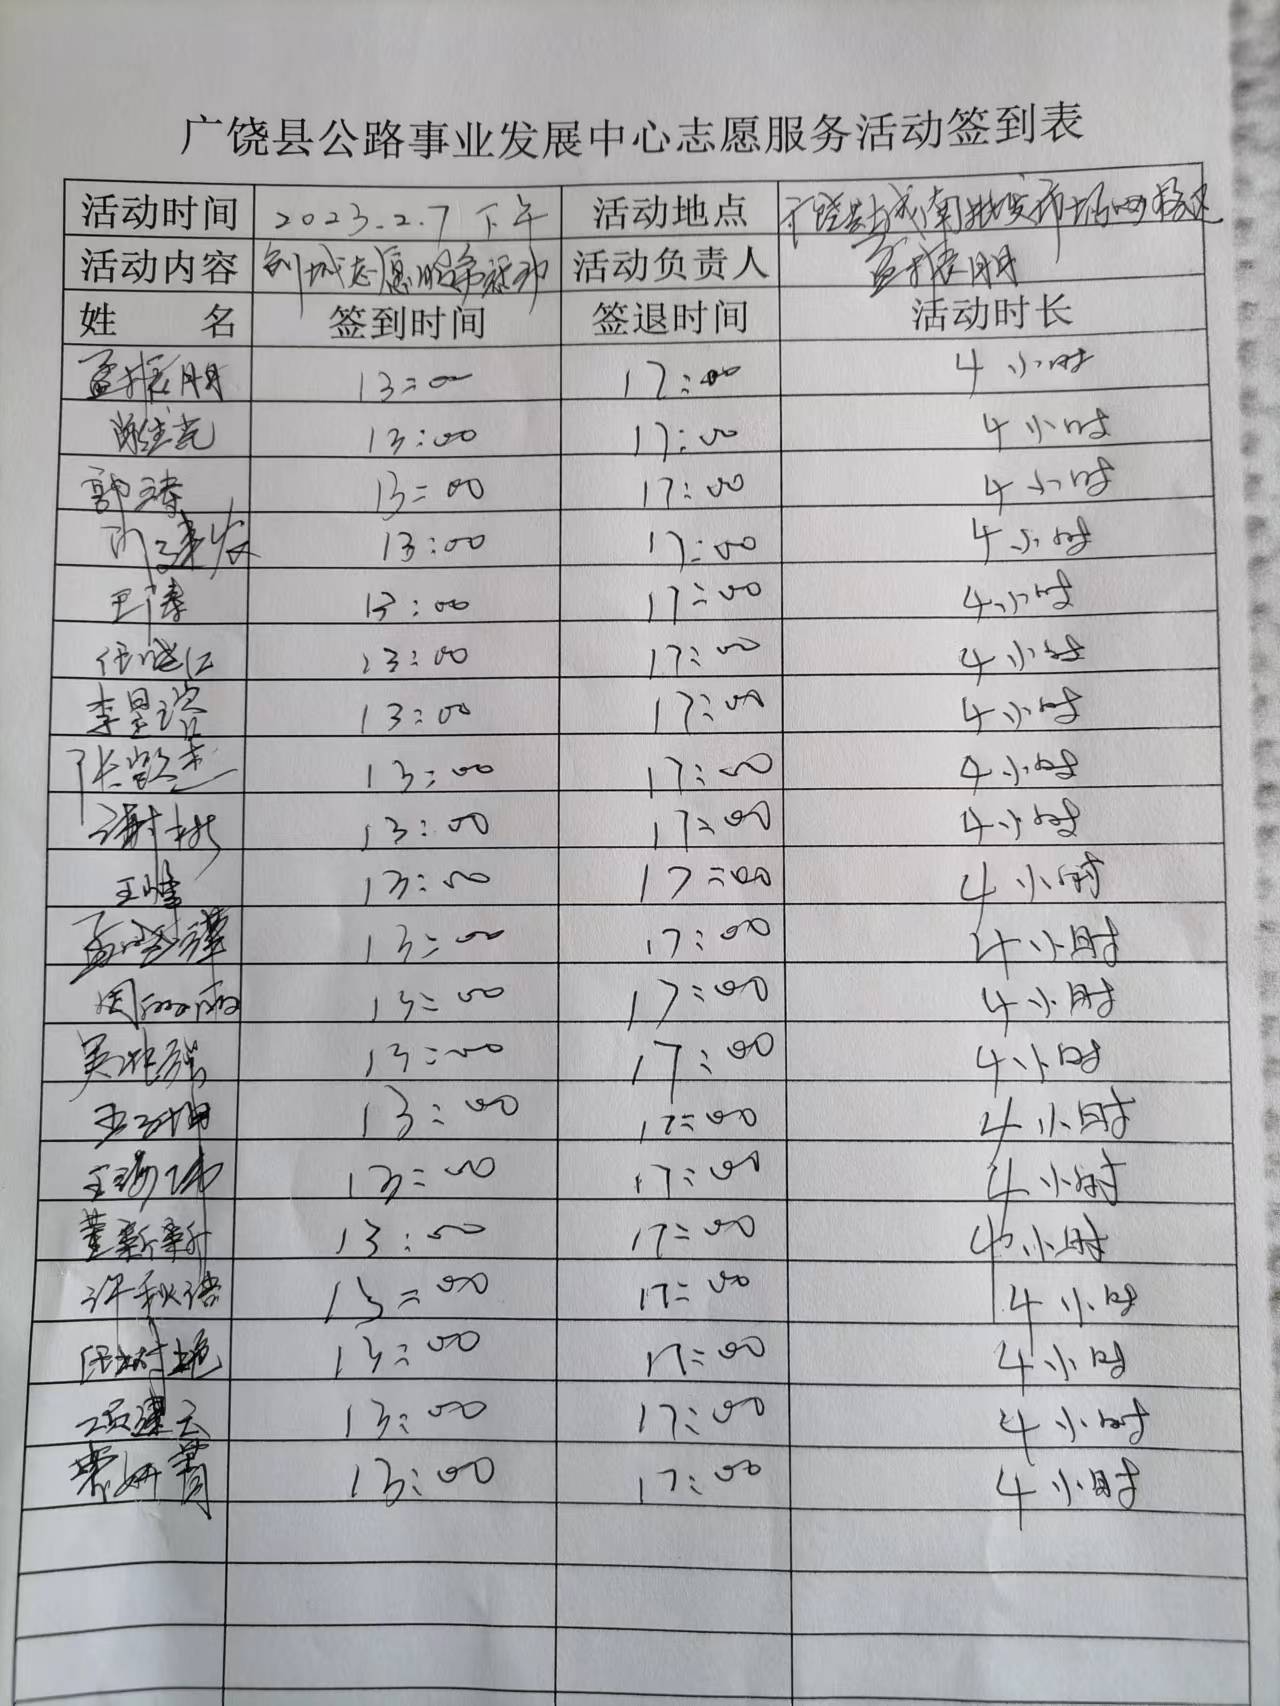 广饶县公路事业发展中心志愿服务活动签到表
活动时间 2023.2.7 下午 活动地点 广饶县城南批发市场网格区
活动内容 创城志愿服务活动 活动负责人 孟振朋
姓 名 签到时间 签退时间 活动时长
孟振朋 13:00 17:00 4小时
13:00 17:00 4小时
郭涛 13:00 17:00 4小时
13:00 17:00 4小时
王涛 13:00 17:00 4小时
任晓红 13:00 17:00 4小时
李昱瑢 13:00 17:00 4小时
张凯杰 13:00 17:00 4小时
谢彬 13:00 17:00 4小时
王晴 13:00 17:00 4小时
孟晓瑾 13:00 17:00 4小时
周雨 13:00 17:00 4小时
吴浩强 13:00 17:00 4小时
王子坤 13:00 17:00 4小时
王海伟 13:00 17:00 4小时
董新新 13:00 17:00 4小时
许秋浩 13:00 17:00 4小时
任树艳 13:00 17:00 4小时
项建云 13:00 17:00 4小时
13:00 17:00 4小时